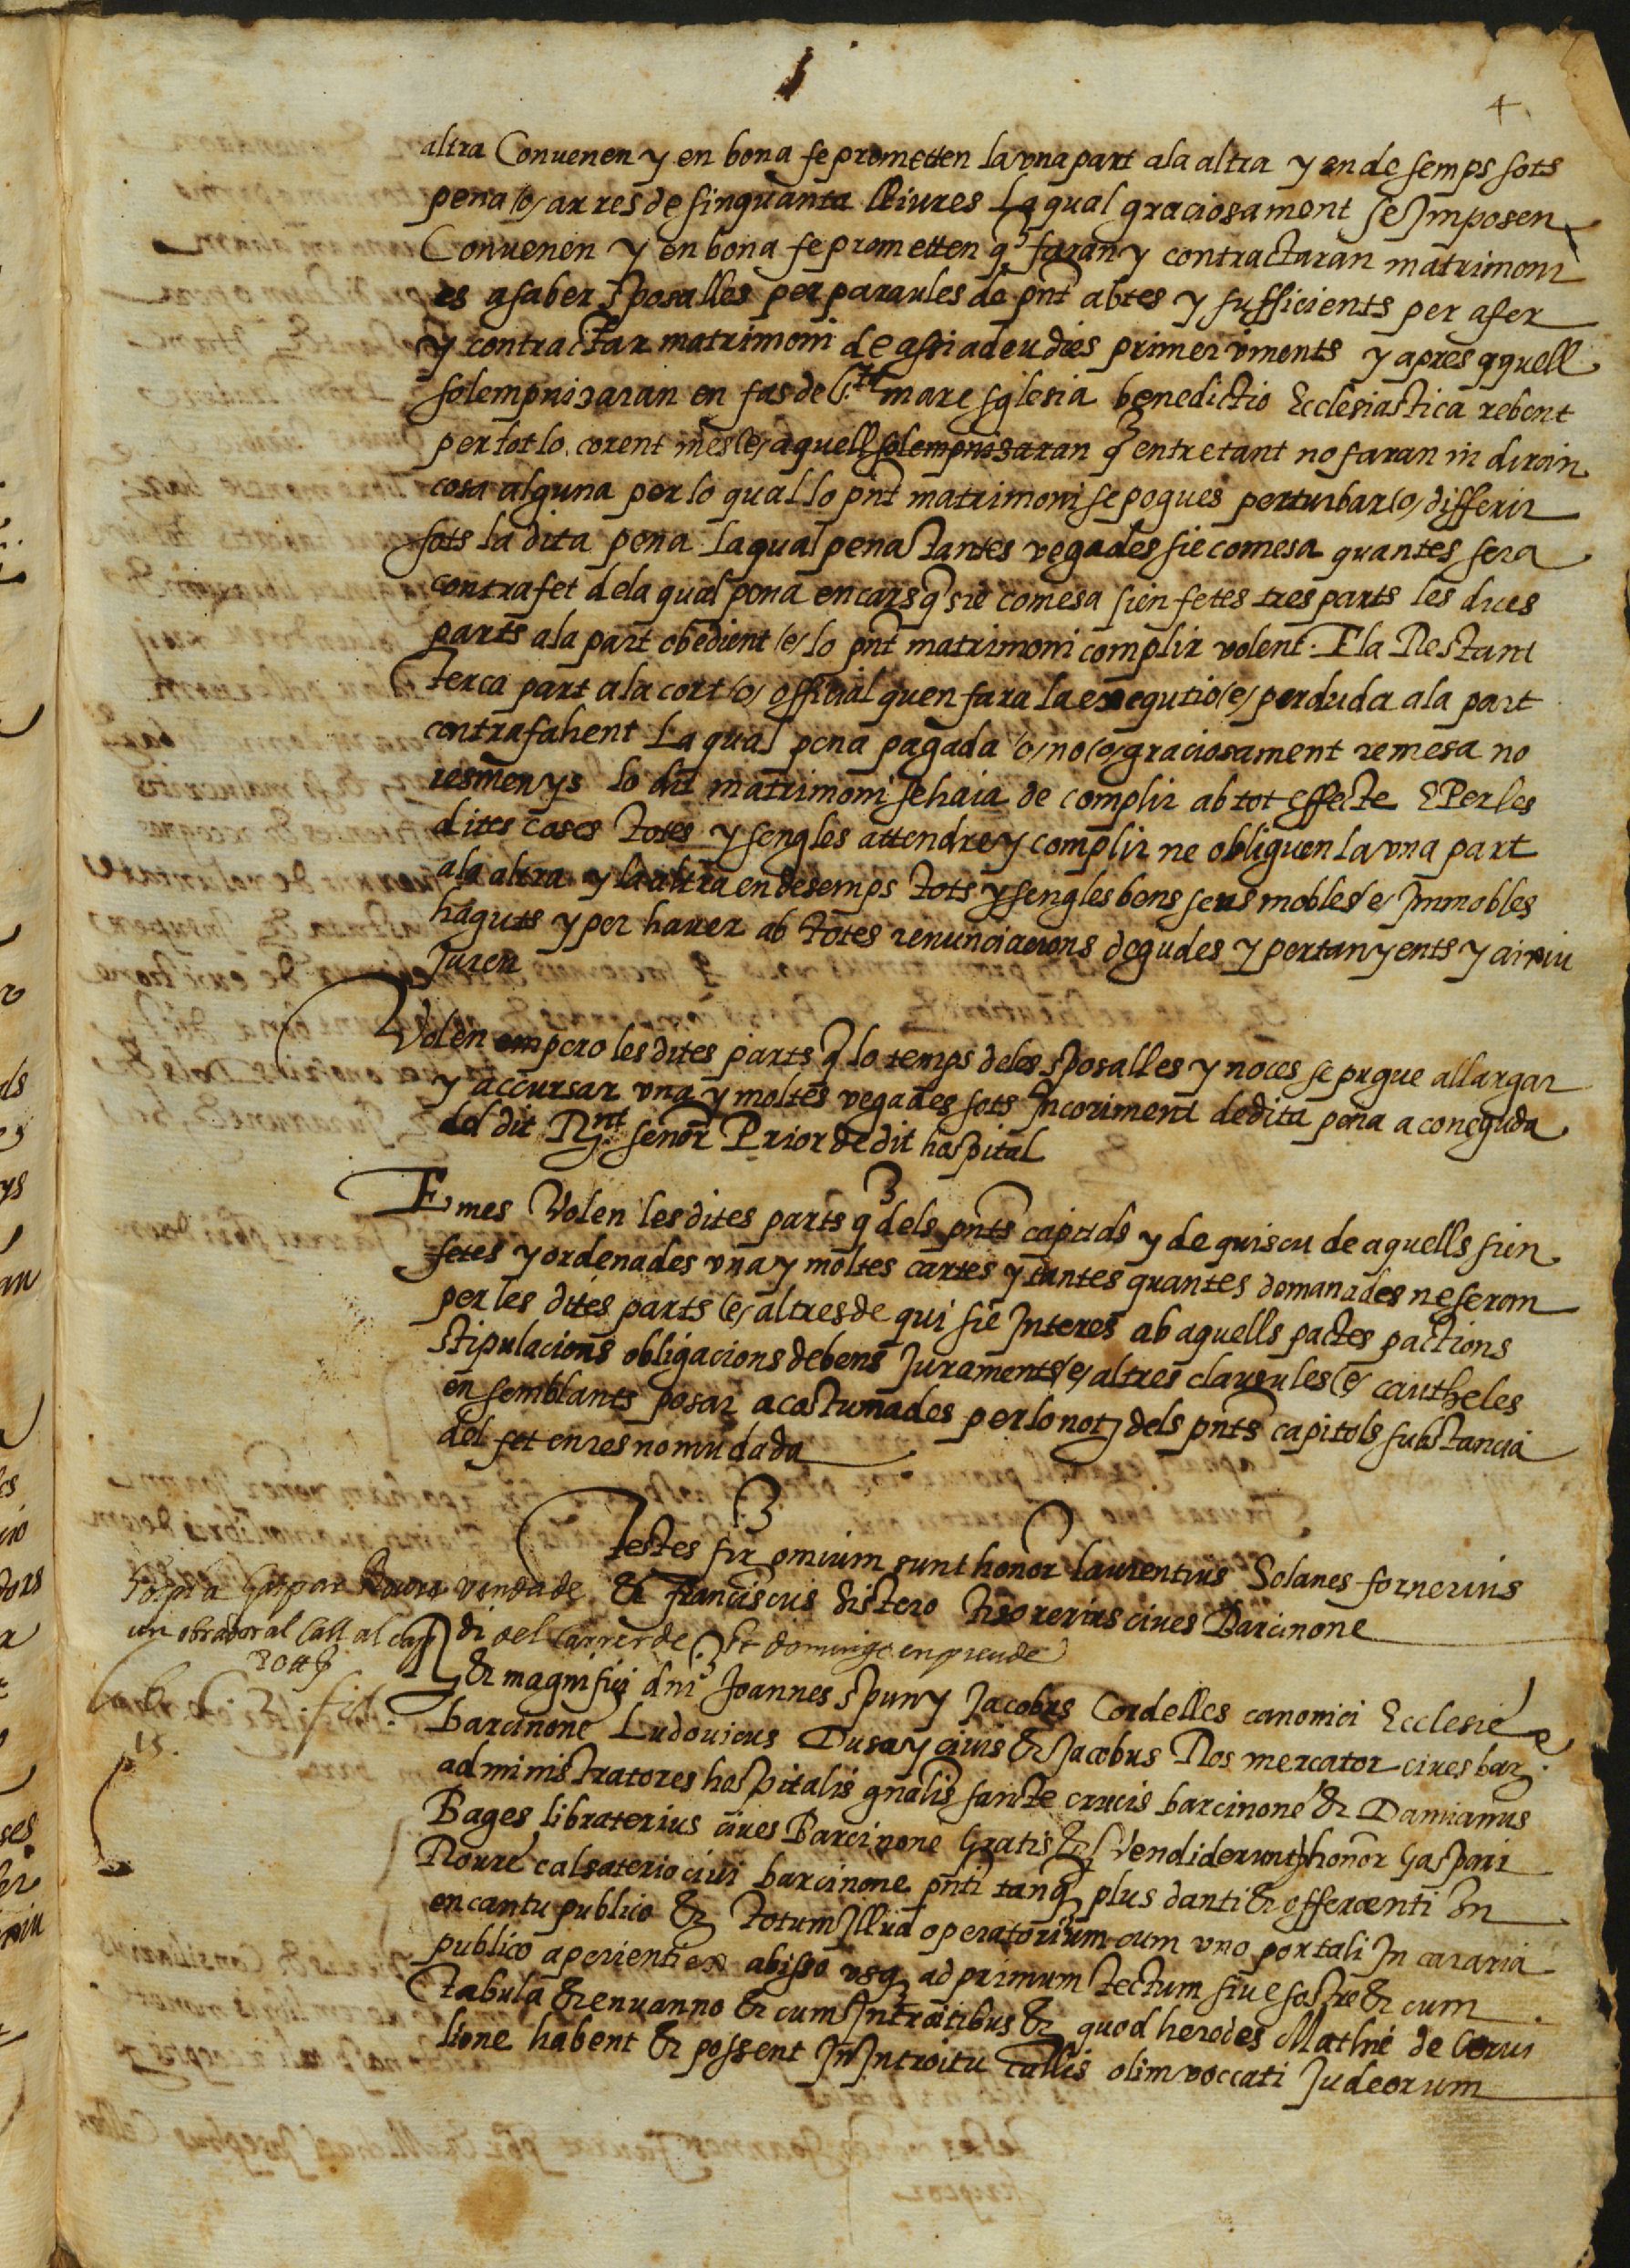 4
altra Conuenen y en bona fe prometten la vna part ala altra y en de semps sots
pena /o/ arres de sinquanta lliures La qual graciosament se Imposen
Conuenen y en bona fe prometten q̃ faran y contractaran matrimoni
es a saber Sposalles per paraules de pnt̃ abtes y sufficients per afer
y contractar matrimoni de assi a deu dies primer vinents y apres aquell
solempnizaran en fas de S.ta mare Sglesia benedictio Ecclesiastica rebent
per tot lo corent mes /e/ aquell solempnisaran q̃ entretant no faran ni diran
cosa alguna per lo qual lo pnt̃ matrimoni se pogues perturbar /o/ differir
sots la dita pena La qual pena tantes vegades sie comesa quantes sera
contrafet de la qual pena en cars q̃ sie comesa sien fetes tres parts les dues
parts ala part obedient /e/ lo pnt̃ matrimoni complir volent. E la Restant
terca part ala cort /o/ official quen fara la exegutio /e/ perduda ala part
contrafahent La qual pena pagada /o/ no /o/ graciosament remesa no
resmenys lo dit matrimoni se haia de complir ab tot effecte E Per les
dites coses totes y sengles attendre y complir ne obliguen la vna part
ala altra y la altra en desemps tots y sengles bens seus mobles /e/ Immobles
haguts y per hauer ab totes renunciacions degudes y pertanyents y airiu
Juren
Volen empero les dites parts q̃ lo temps deles Sposalles y noces se pugue allargar
y accursar vna y moltes vegades sots Incoriment de dita pena a coneguda
del dit R.nt señor Prior de dit hospital
E mes Volen les dites parts q̃ dels pnt̃s capitols y de quiscu de aquells sien
fetes y ordenades vna y moltes cartes y tantes quantes demanades ne seran
per les dites parts /e/ altres de qui sie Interes ab aquells pactes pactions
stipulacions obligacions de bens Juraments /e/ altres clausules /e/ cautheles
en semblants posar acostumades per lo not dels pnt̃s capitols substancia
del fet en res no mudada
Testes fir omium sunt honor laurentius Solanes fornerius
& franciscus Distero tisorerius ciues Barcinone
Gaspar Roure venda de
un obrador al Call al cap di del Carrer de St domingo en preu de
204 ₶
Nos & magnifici dni Joannes Spuny Jacobus Cordelles canonici Ecclesie
barcinone Ludouicus Dusay ciuis & Jacobus Ros mercator ciues bar
15.
administratores hospitalis gñalis sancte crucis barcinone & Damianus
Bages libraterius ciues Barcinone Gratis & Vendiderunt honor Gaspari
Rourre calsaterio ciui barcinone pnti tanq̃ plus danti & offerenti In
encantu publico & totum Illud operatorium cum vno portali In cararia
publico aperienti ex abisso vsq ad primum tectum siue sostre & cum
tabula & enuanno & cum Introitibus & quod heredes Mathie de Cerui
lione habent & possent In Introitu callis olim voccati Judeorum